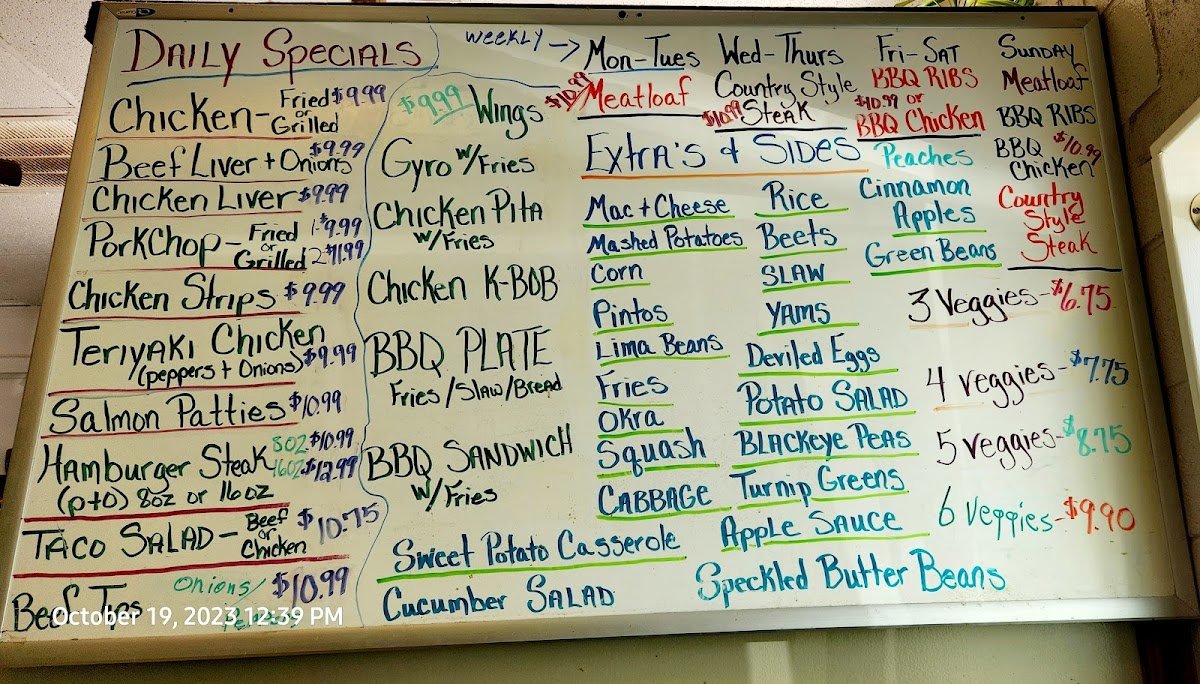 DAILY SPECIALS
Chicken- Fried $9.99
or
Grilled
Beef Liver + Onions $9.99
Chicken Liver $9.99
PorkChop- Fried 1-$9.99
or
Grilled 2-$11.99
Chicken Strips $9.99
Teriyaki Chicken
(peppers + Onions) $9.99
Salmon Patties $10.99
Hamburger Steak 8oz $10.99
16oz $12.99
(p+o) 8oz or 16oz
Taco Salad- Beef $10.75
or
Chicken
Beef Onions/ $10.99
October 19, 2023 12:39 PM
$9.99 Wings
Gyro w/Fries
Chicken Pita
w/Fries
Chicken K-BOB
BBQ PLATE
Fries/Slaw/Bread
BBQ SANDWICH
w/Fries
Weekly ->
Mon-Tues
$10.99 Meatloaf
Wed-Thurs
Country Style
$10.99 Steak
Fri-Sat
BBQ RIBS
$10.99 or
BBQ Chicken
Sunday
Meatloaf
BBQ RIBS
BBQ $10.99
Chicken
Country
Style
Steak
Extra's & Sides
Mac + Cheese
Mashed Potatoes
Corn
Pintos
Lima Beans
Fries
Okra
Squash
CABBAGE
Rice
Beets
SLAW
YAMS
Deviled Eggs
Potato SALAD
BLACKeye PEAS
Turnip Greens
Apple SAUCE
Peaches
Cinnamon
Apples
Green Beans
Sweet Potato Casserole
Cucumber SALAD
Speckled Butter Beans
3 Veggies-$6.75
4 veggies-$7.75
5 veggies-$8.75
6 veggies-$9.90